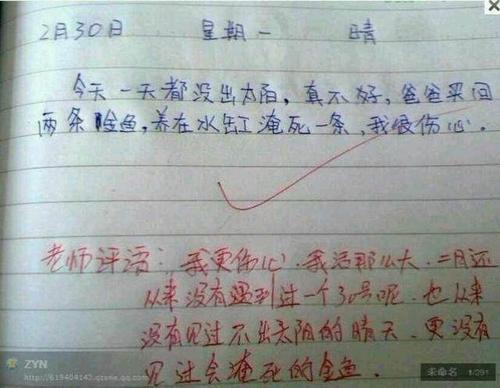 2月30日 星期一 晴
今天一天都没出太阳，真不好，爸爸买回
两条金鱼，养在水缸淹死一条，我很伤心。
老师评语：我更伤心．我活那么大．二月还
从来没有遇到过一个30号呢．也从来
没有见过不出太阳的晴天．更没有
见过会淹死的金鱼．
ZYN
http://619404142.qzone.qq.com
未命名 1/291